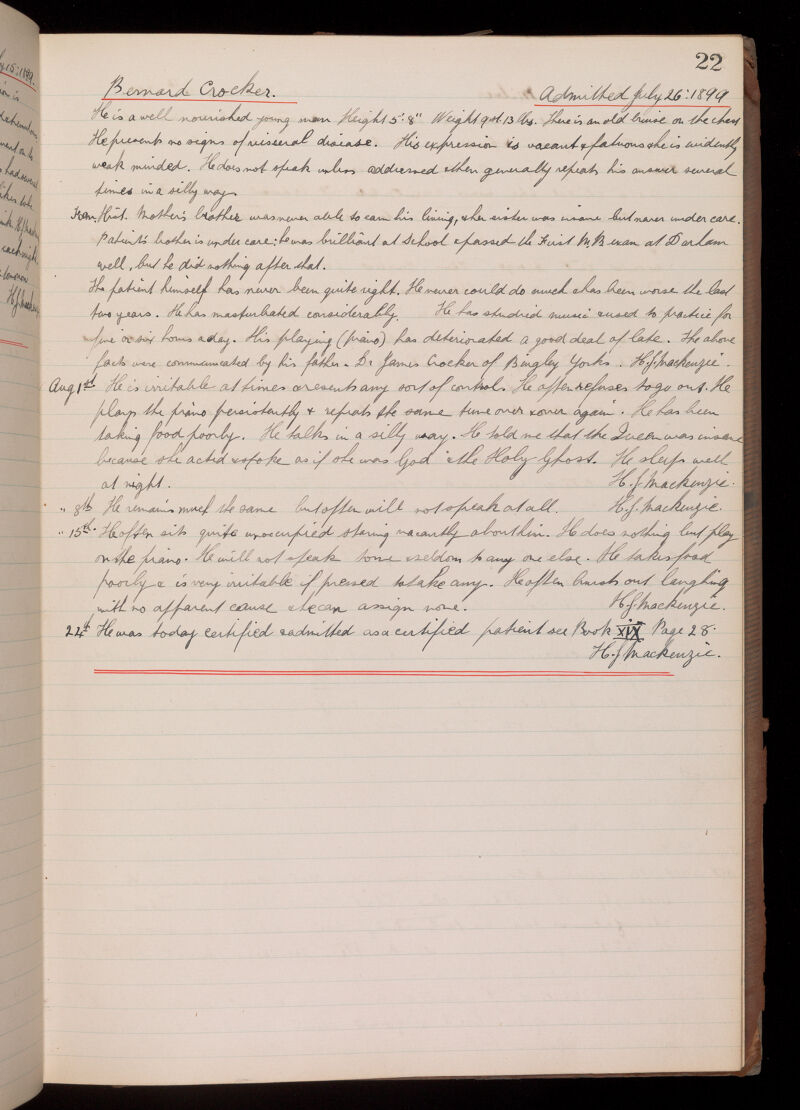 22
Bernard Crocker. Admitted July 26: 1899
He is a well nourished young man Height 5'.8" Weight 9 st. 13 lbs. There is an old bruise on the chest
He presents no signs of visseral disease. His expression is vacant & fatuous & he is evidently
weak minded. He does not speak unless addressed & then generally repeats his answer several
times in a silly way.
Fam. Hist. Mother's brother was never able to earn his living, & her sister was insane but never under care.
Patient's brother is under care: he was brilliant at School & passed the First M.B exam at Durham
well, but he did nothing after that.
The patient himself has never been quite right. He never could do much & has been worse the last
two years. He has masturbated considerably. He has studied music & used to practice for
five or six hours a day. His playing (piano) has deteriorated a good deal of late. The above
facts were communicated by his father - Dr James Crocker of Bingley Yorks. H.J. Mackenzie.
Aug 1st He is irritable at times & resents any sort of control. He often refuses to go out. He
plays the piano persistently & repeats the same tune over & over again. He has been
taking food poorly. He talks in a silly way. He told me that the Queen was insane
because she acted & spoke as if she was God & the Holy Ghost. He sleeps well
at night. H.J. Mackenzie.
" 8th He remains much the same but often will not speak at all. H.J. Mackenzie.
" 15th. He often sits quite unoccupied staring vacantly about him. He does nothing but play
on the piano. He will not speak to me & seldom to any one else. He takes food
poorly & is very irritable if pressed to take any. He often bursts out laughing
with no apparent cause & he can assign none. H.J. Mackenzie.
24th He was today certified & admitted as a certified patient see Book XIX Page 28.
H.J. Mackenzie.